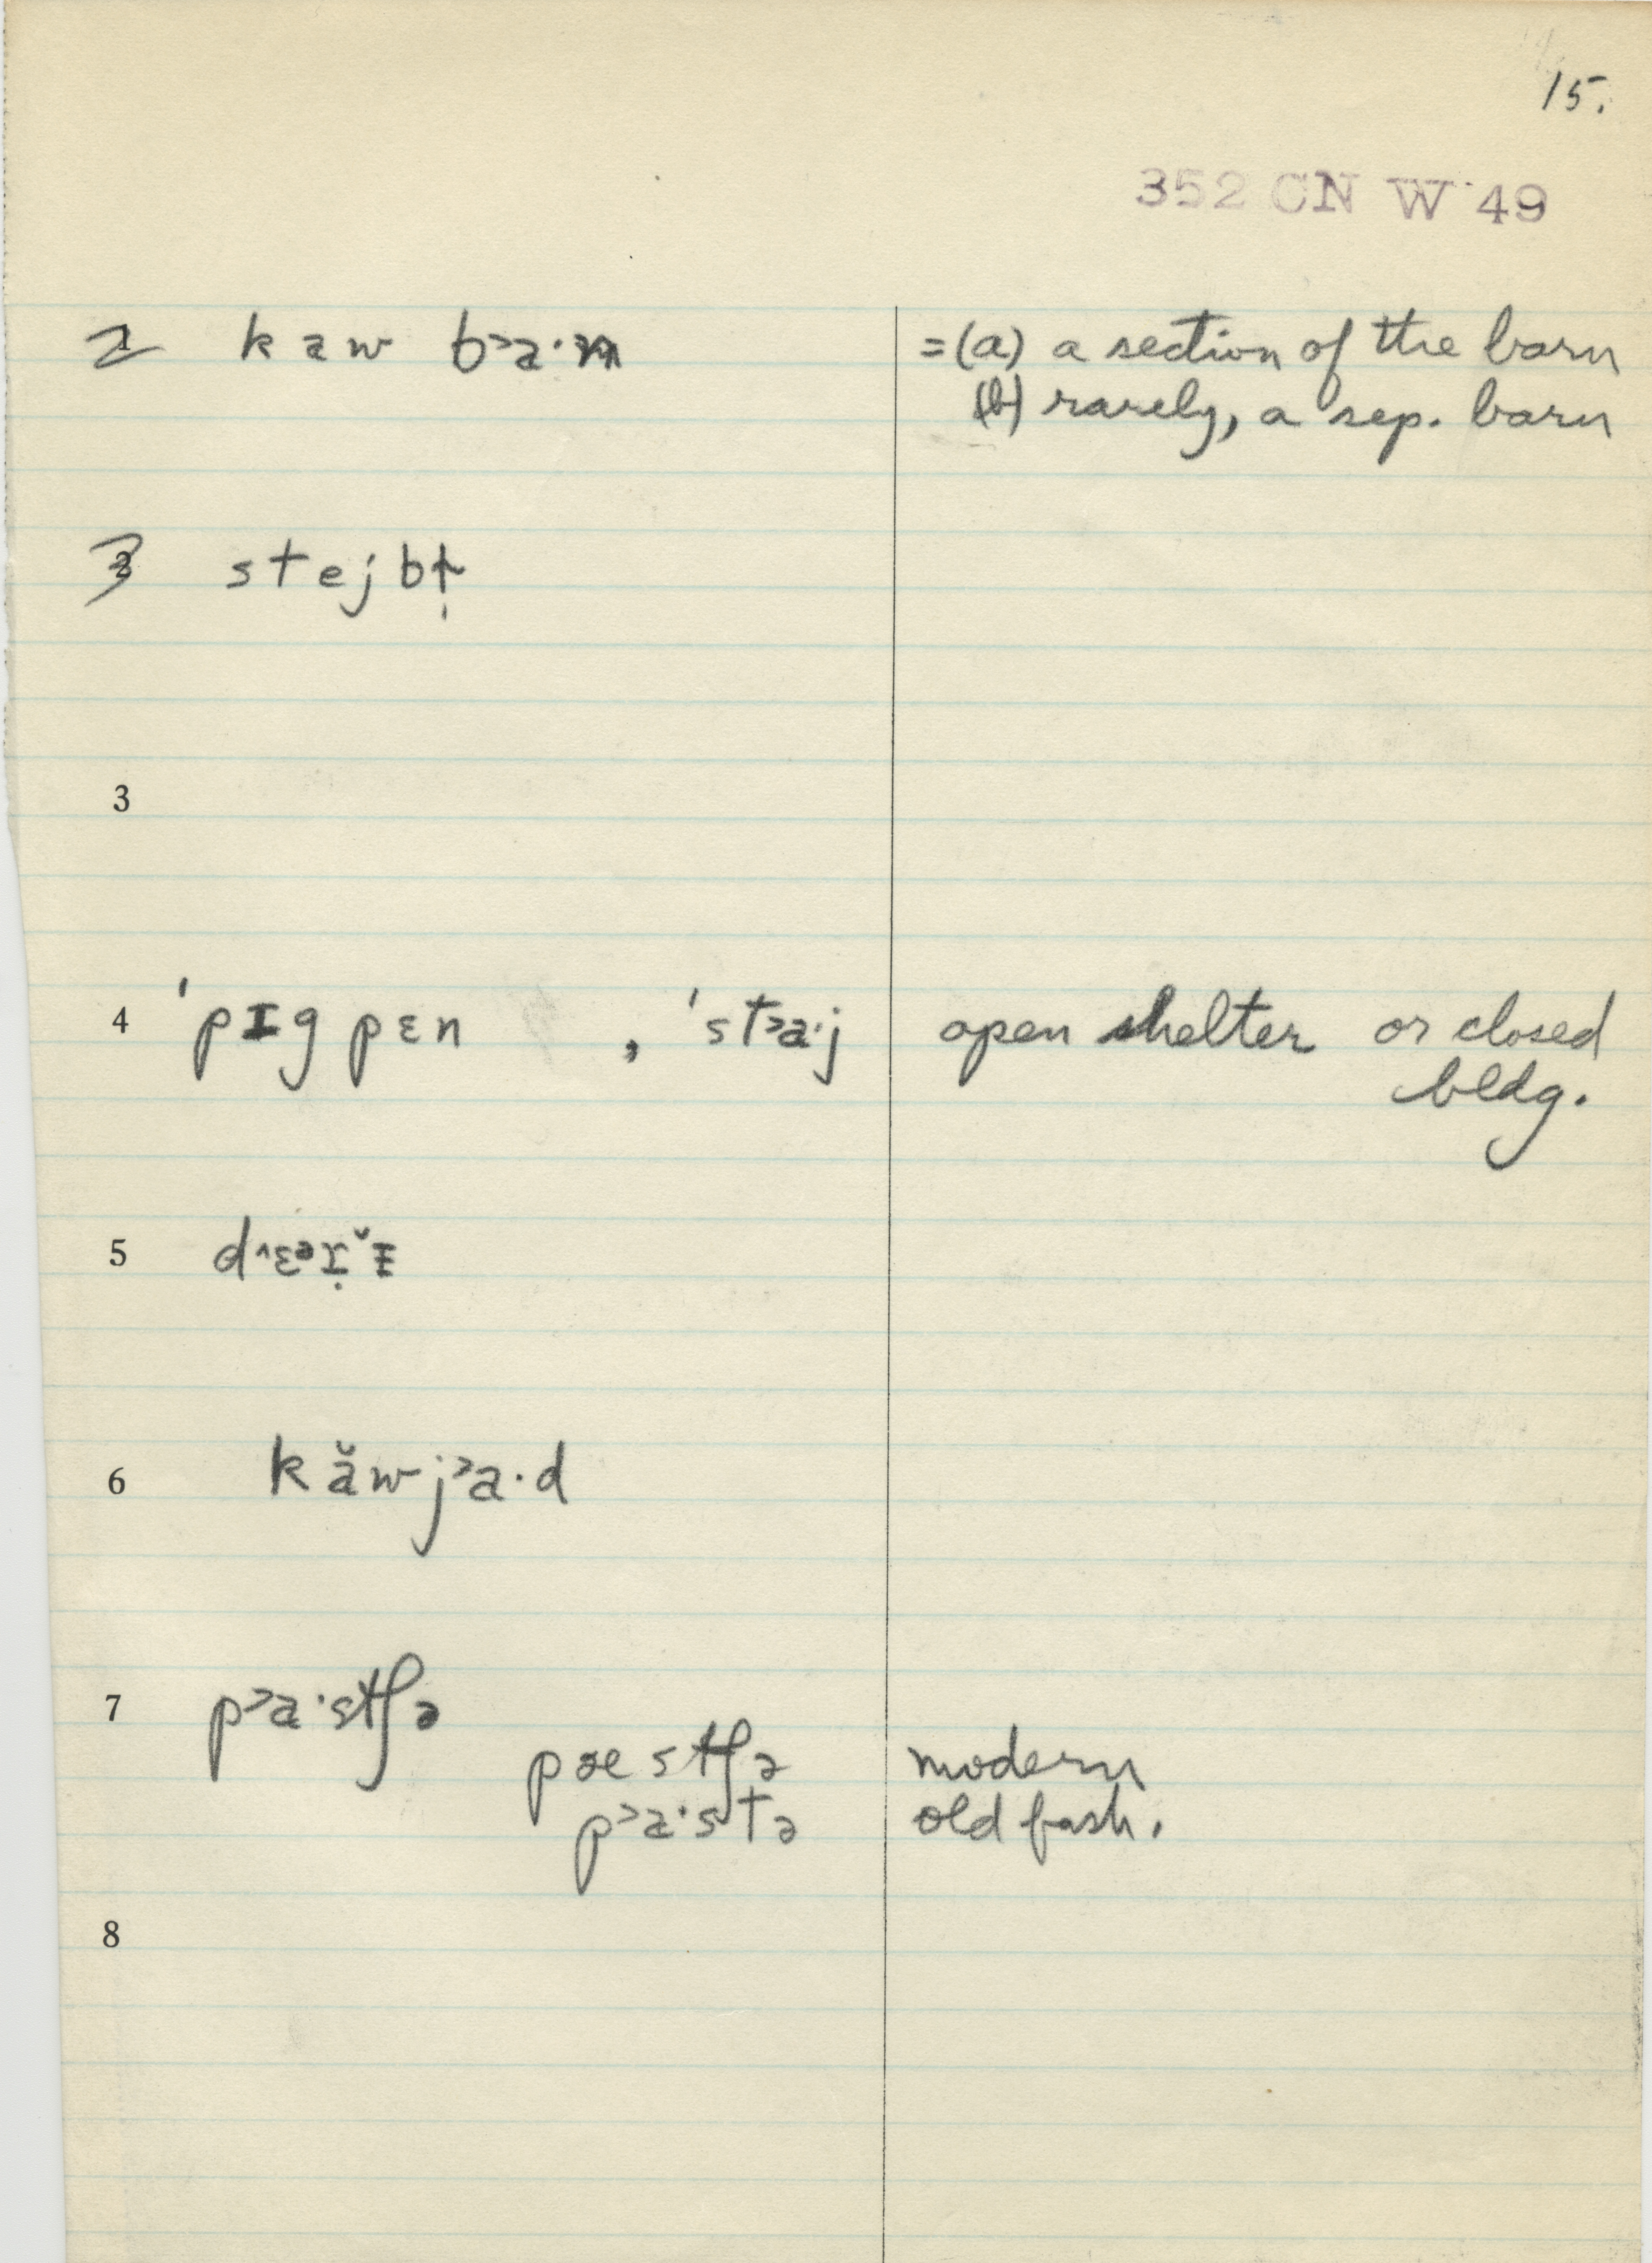 15.
352 CN W 49
2 kaw b˃a·n =(a) a section of the barn
(b) rarely, a sep. barn
3 stejbɫ̩
3
4 'pɪgpɛn , 'st˃a·j open shelter or closed
bldg.
5
6 kăwj˃a·d
7 p˃a·stʃə
pæstʃə modern
p˃a·stə old fash.
8